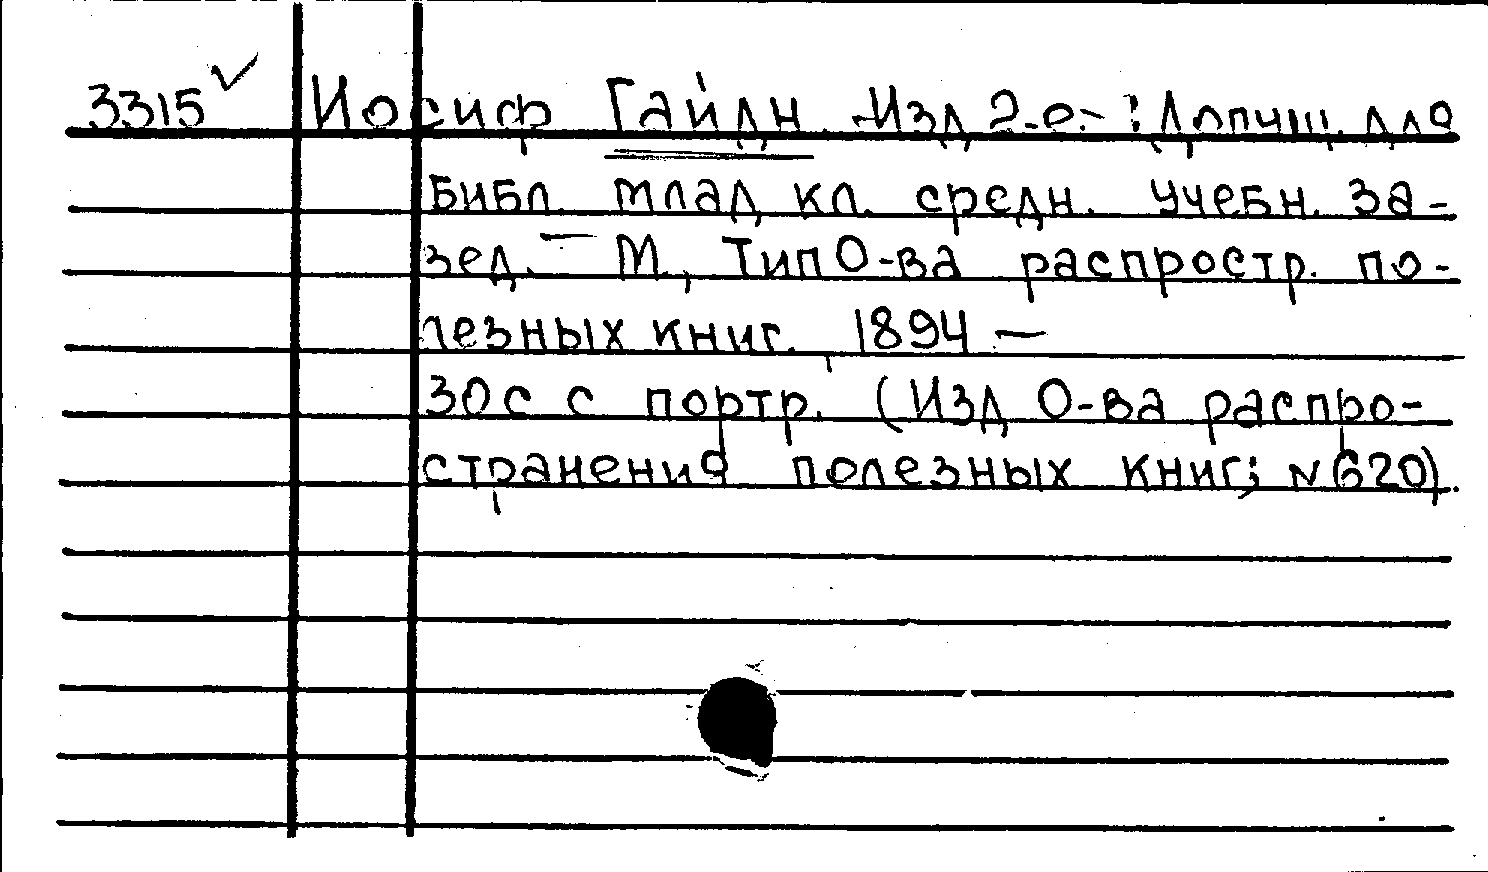 3315 Иосиф Гайдн. Изд 2-е.- [Допущ. для
библ. млад кл. средн. учебн. за-
вед. - М., Тип О-ва распростр. по-
лезных книг, 1894 —
30с с портр. (Изд О-ва распро-
странения полезных книг; N 620).